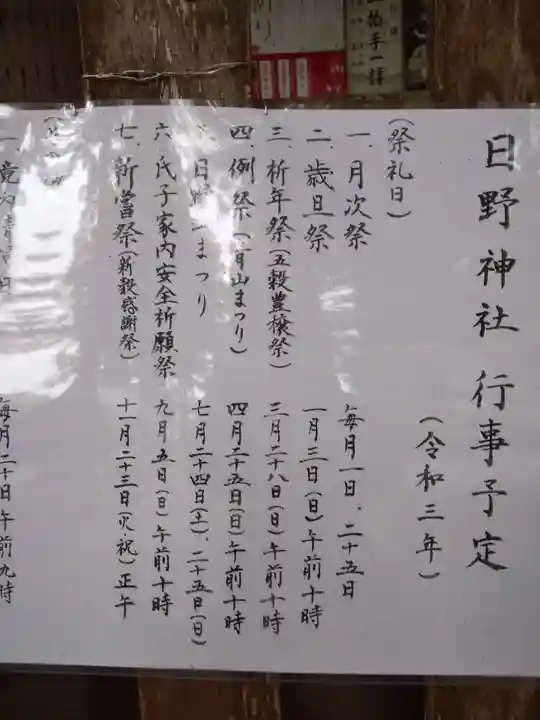 日野神社 行事予定
(令和三年)
(祭礼日)
一、月次祭 毎月一日、二十五日
二、歳旦祭 一月三日(日)午前十時
三、祈年祭(五穀豊穣祭) 三月二十八日(日)午前十時
四、例祭(青山まつり) 四月二十五日(日)午前十時
日野 まつり 七月二十四日(土)、二十五日(日)
六、氏子家内安全祈願祭 九月五日(日)午前十時
七、新嘗祭(新穀感謝祭) 十一月二十三日(火・祝)正午
一、境内清 日 毎月二十日午前九時
一拍手一拝